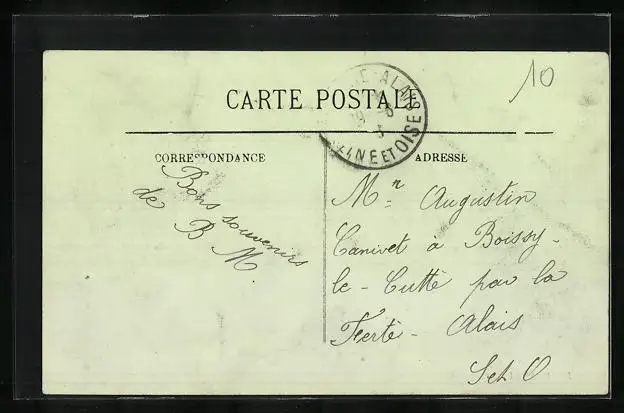 10
CARTE POSTALE
E-ALAIS
19 - 6
3
INE ET OISE
CORRESPONDANCE
ADRESSE
Bons souvenirs
de B M
Mn Augustin
Canivet à Boissy-
le-Cutté par la
Ferté-Alais
S et O